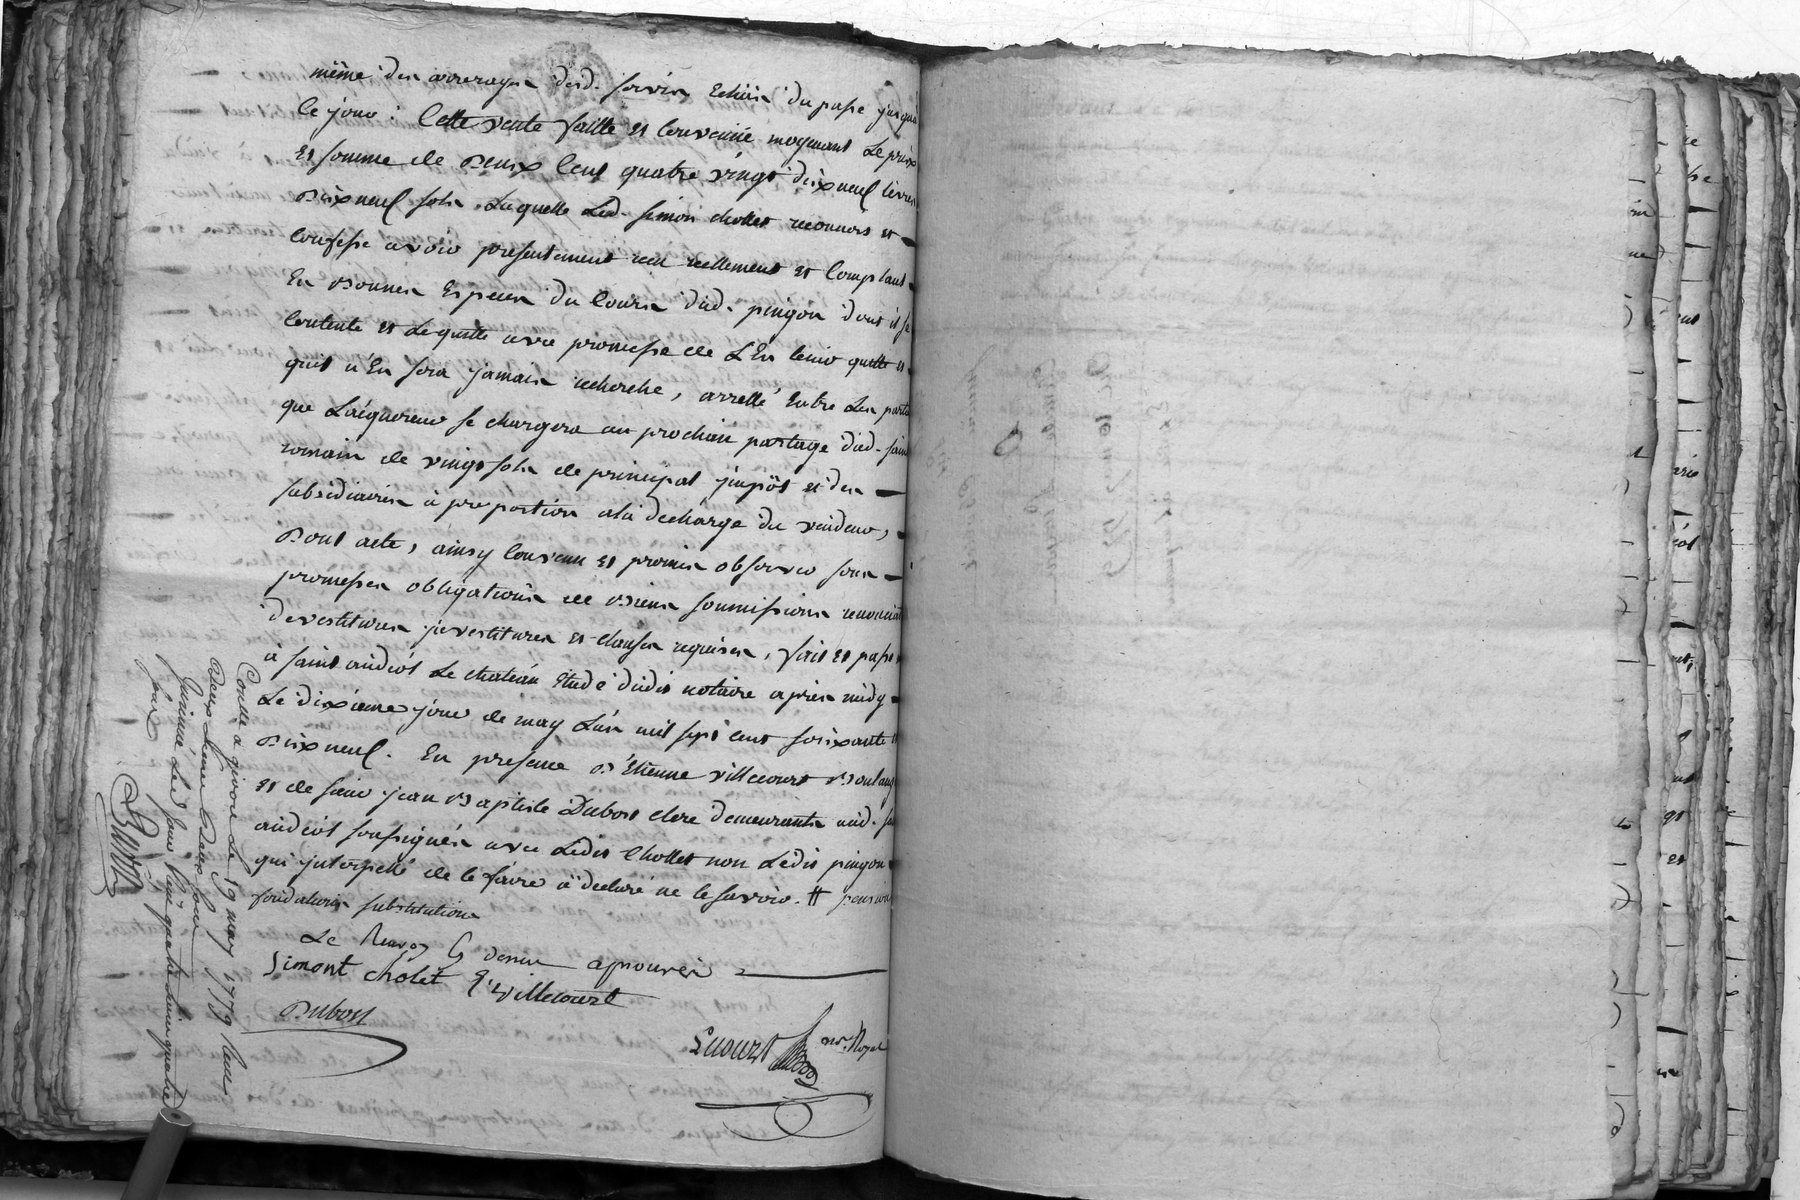 même des arrerages desd. servis echus du passe jusqua
ce jour : Cette vente faitte et convenüe moyenant le prix
et somme de Deux Cent quatre vingt dixneuf livres
Dixneuf sols. Laquelle Led. Simon chollet reconnois et
confesse avoir presentement reçu reellement et comptant
En Bonnes Especes du Cours dud. pingon dont il se
contente et Le quitte avec promesse de L'En tenir quitte et
quil n'En sera jamais recherché, arretté Entre Les parties
que L'acquereur se chargera au prochain partage dud. saint
romain de vingt sols de principal jmpôt et des
subsidiaires à proportion ala decharge du vendeur,
Dont acte, ainsy Convenu et promis observer sous
promesses obligations de Biens soumissions renonciat
devestitures jnvestitures et clauses requises, fait et passé
à saint andeol Le chateau Etude dudit notaire après midy
Le dixième jour de may L'an mil sept cent soixante et
Dixneuf. En presence D'Etienne villecourt Boulang
et de sieur jean Baptiste Dubost clerc demeurants aud. st
andeol soussignés avec Ledit Chollet non Ledit pingon
qui jnterpellé de le faire à declaré ne le savoir. # pensions
fondations substitutions
Le Renvoy Cy dessus aprouvés
Simont cholet E. villecourt
Dubost
not. Royal
Conllé a givors Le 19 may 1779 Reçu
Deux Livres Deux sous
Jnsinué Led. jour Reçu quatre livres quatre
sous